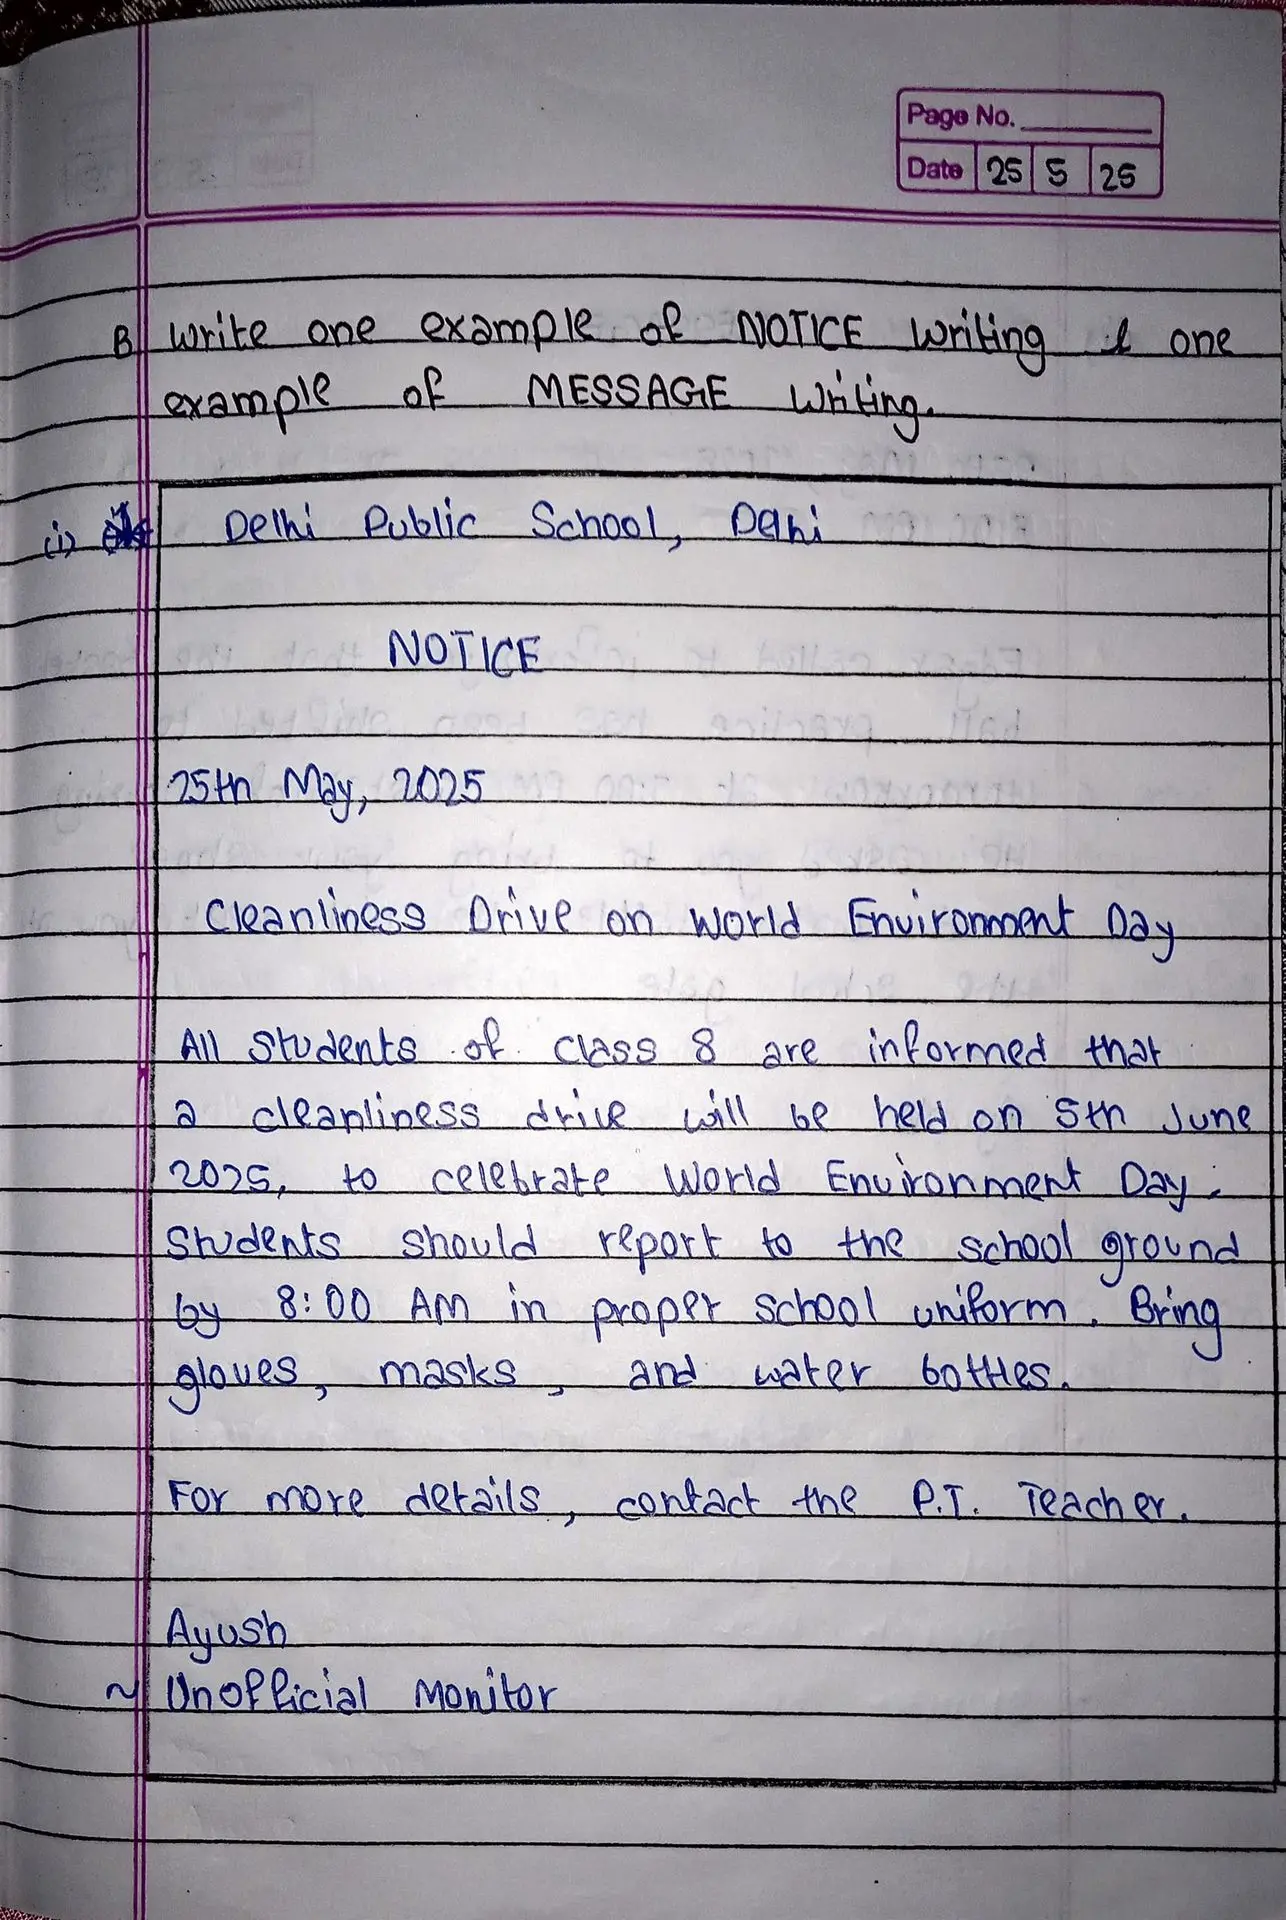 Page No.
Date 25 5 25
B Write one example of NOTICE writing & one
example of MESSAGE writing.
(i) Delhi Public School, Delhi
NOTICE
25th May, 2025
Cleanliness Drive on World Environment Day
All Students of class 8 are informed that
a cleanliness drive will be held on 5th June
2025, to celebrate World Environment Day.
Students should report to the school ground
by 8:00 AM in proper school uniform. Bring
gloves, masks, and water bottles.
For more details, contact the P.T. Teacher.
Ayush
~ Unofficial Monitor